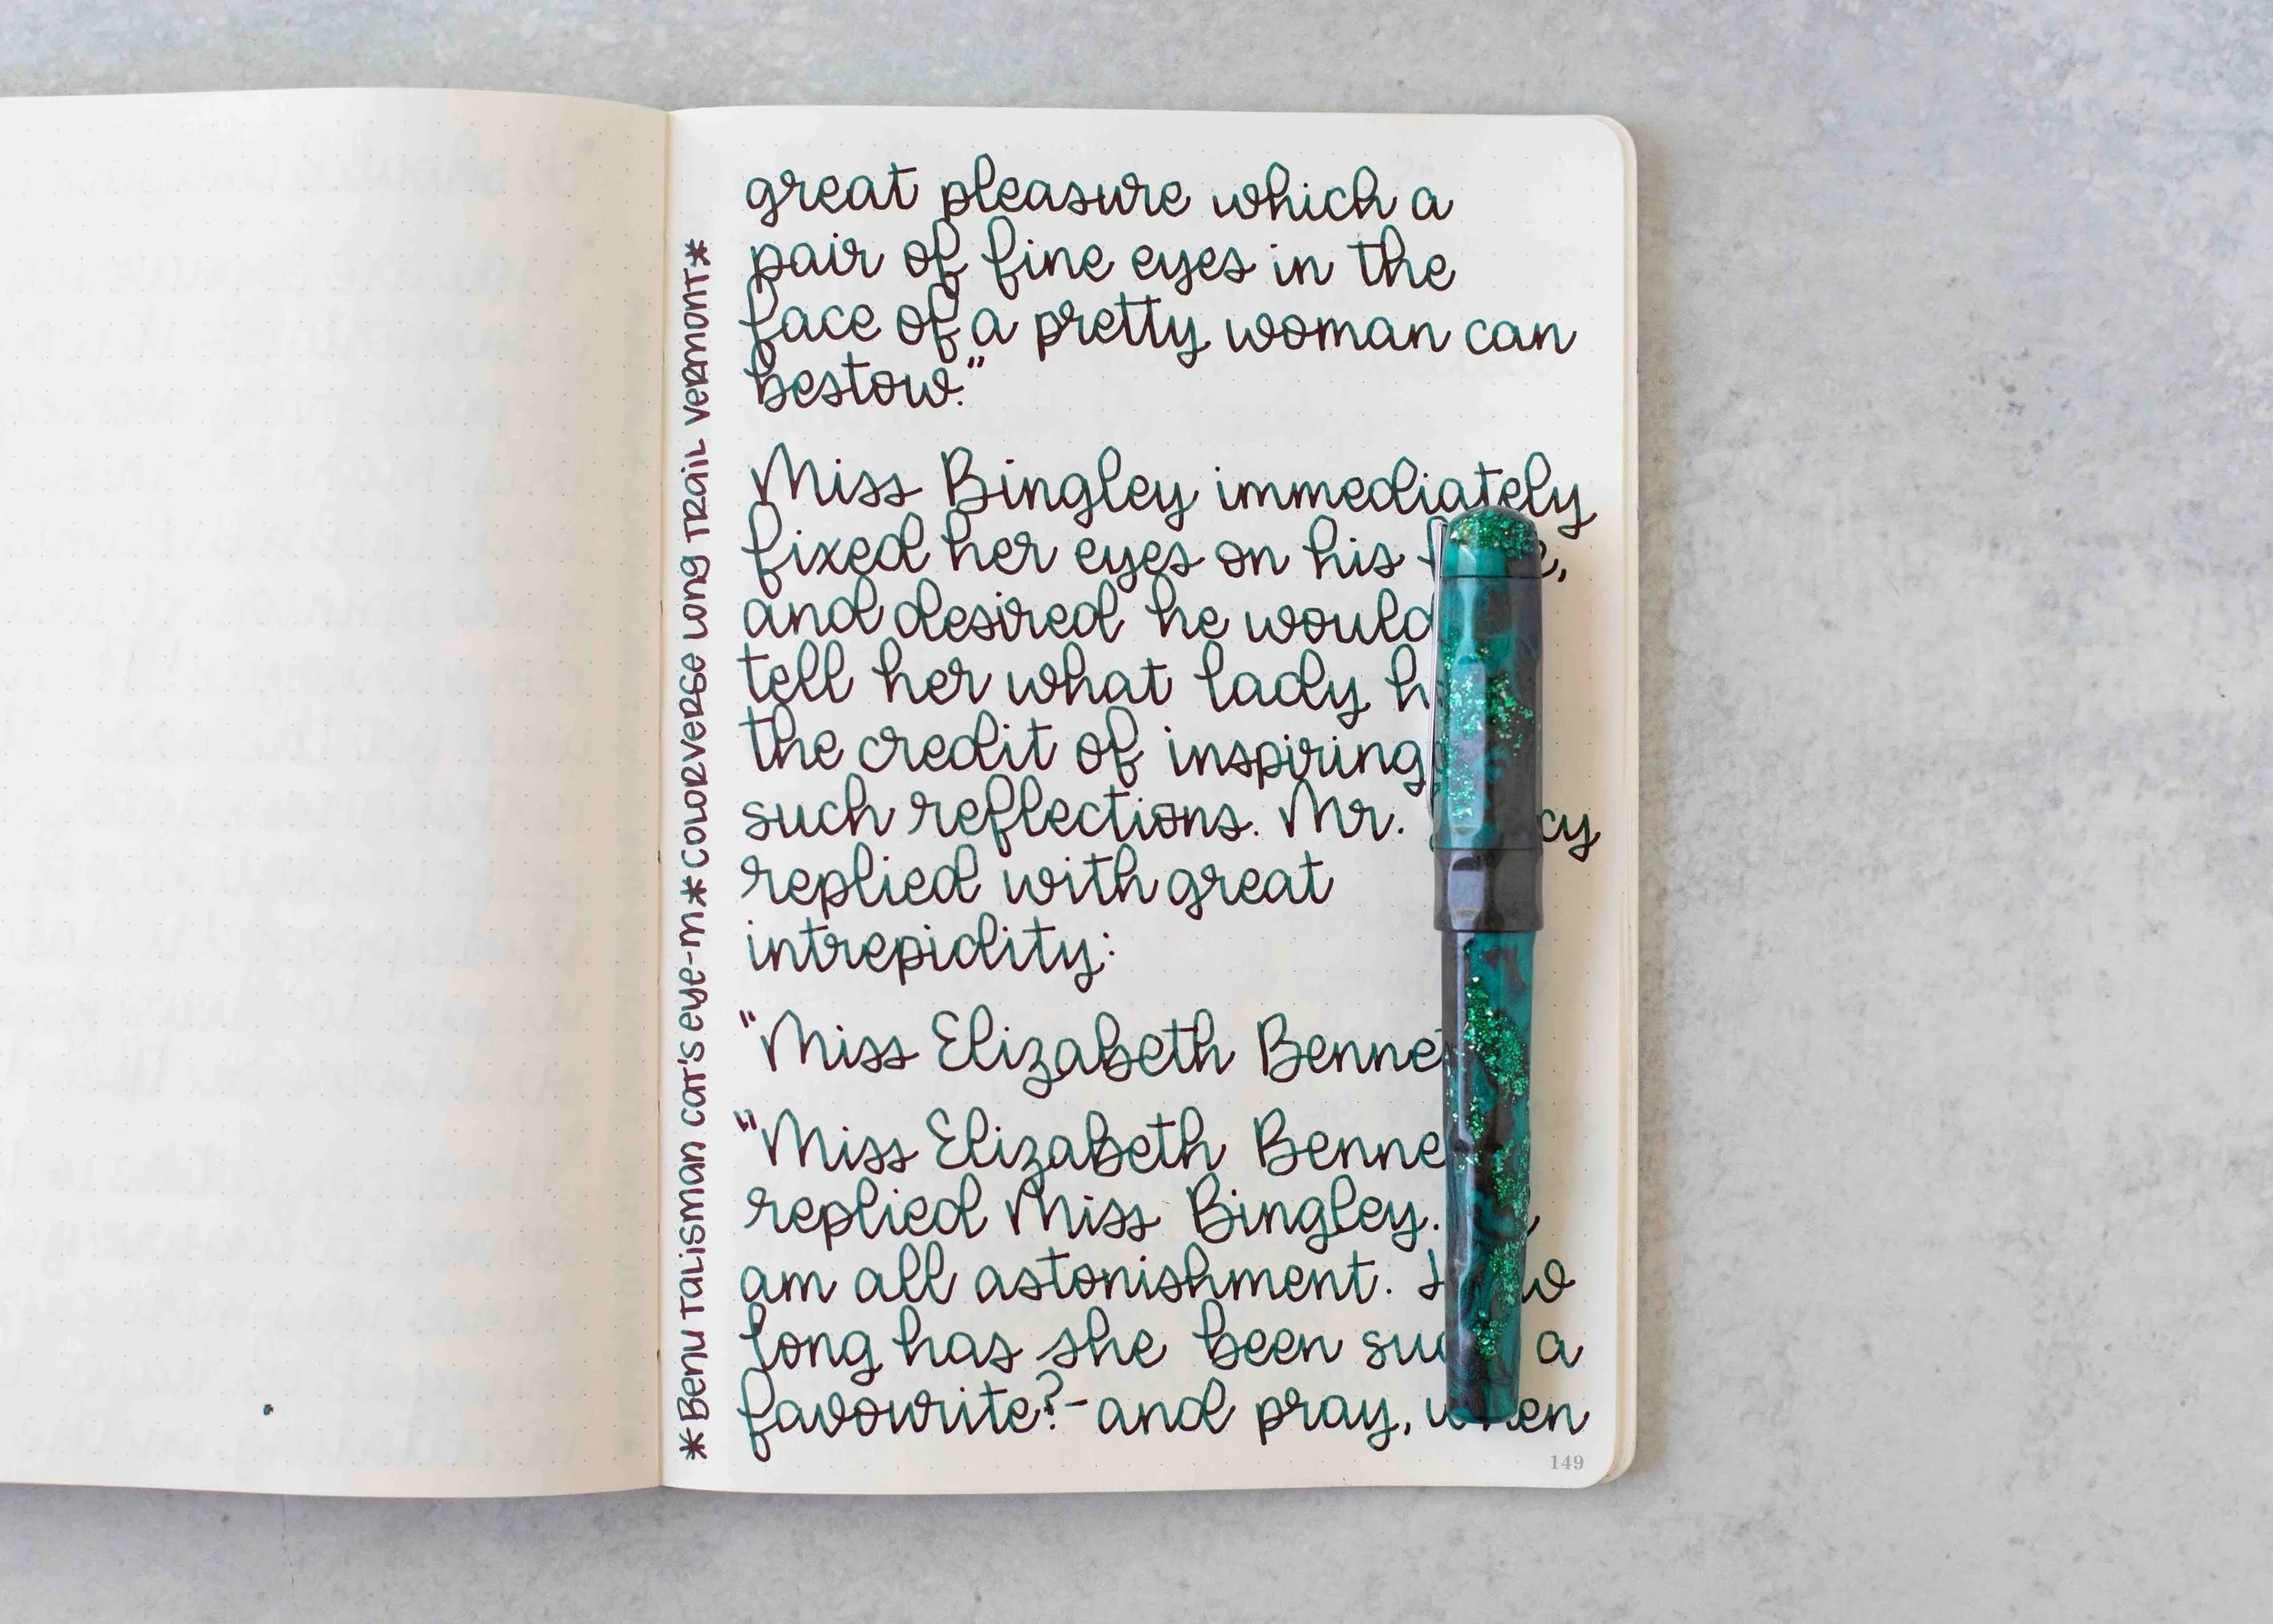 great pleasure which a
pair of fine eyes in the
face of a pretty woman can
bestow."
Miss Bingley immediately
fixed her eyes on his
and desired he would
tell her what lady
the credit of inspiring
such reflections. Mr.
replied with great
intrepidity:
"Miss Elizabeth
"Miss Elizabeth
replied Miss Bingley.
am all astonishment.
long has she been a
favourite?-and pray,
*Benu Talisman cat's eye-m*Colorverse Long Trail Vermont*
149